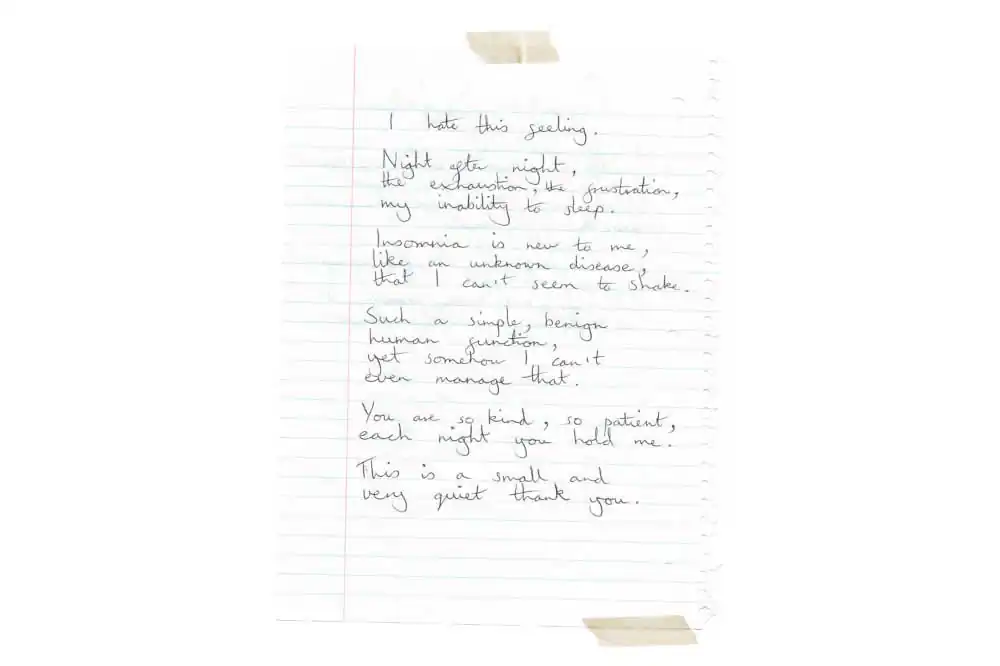 I hate this feeling.
Night after night,
the exhaustion, the frustration,
my inability to sleep.
Insomnia is new to me,
like an unknown disease,
that I can't seem to shake.
Such a simple, benign
human function,
yet somehow I can't
even manage that.
You are so kind, so patient,
each night you hold me.
This is a small and
very quiet thank you.